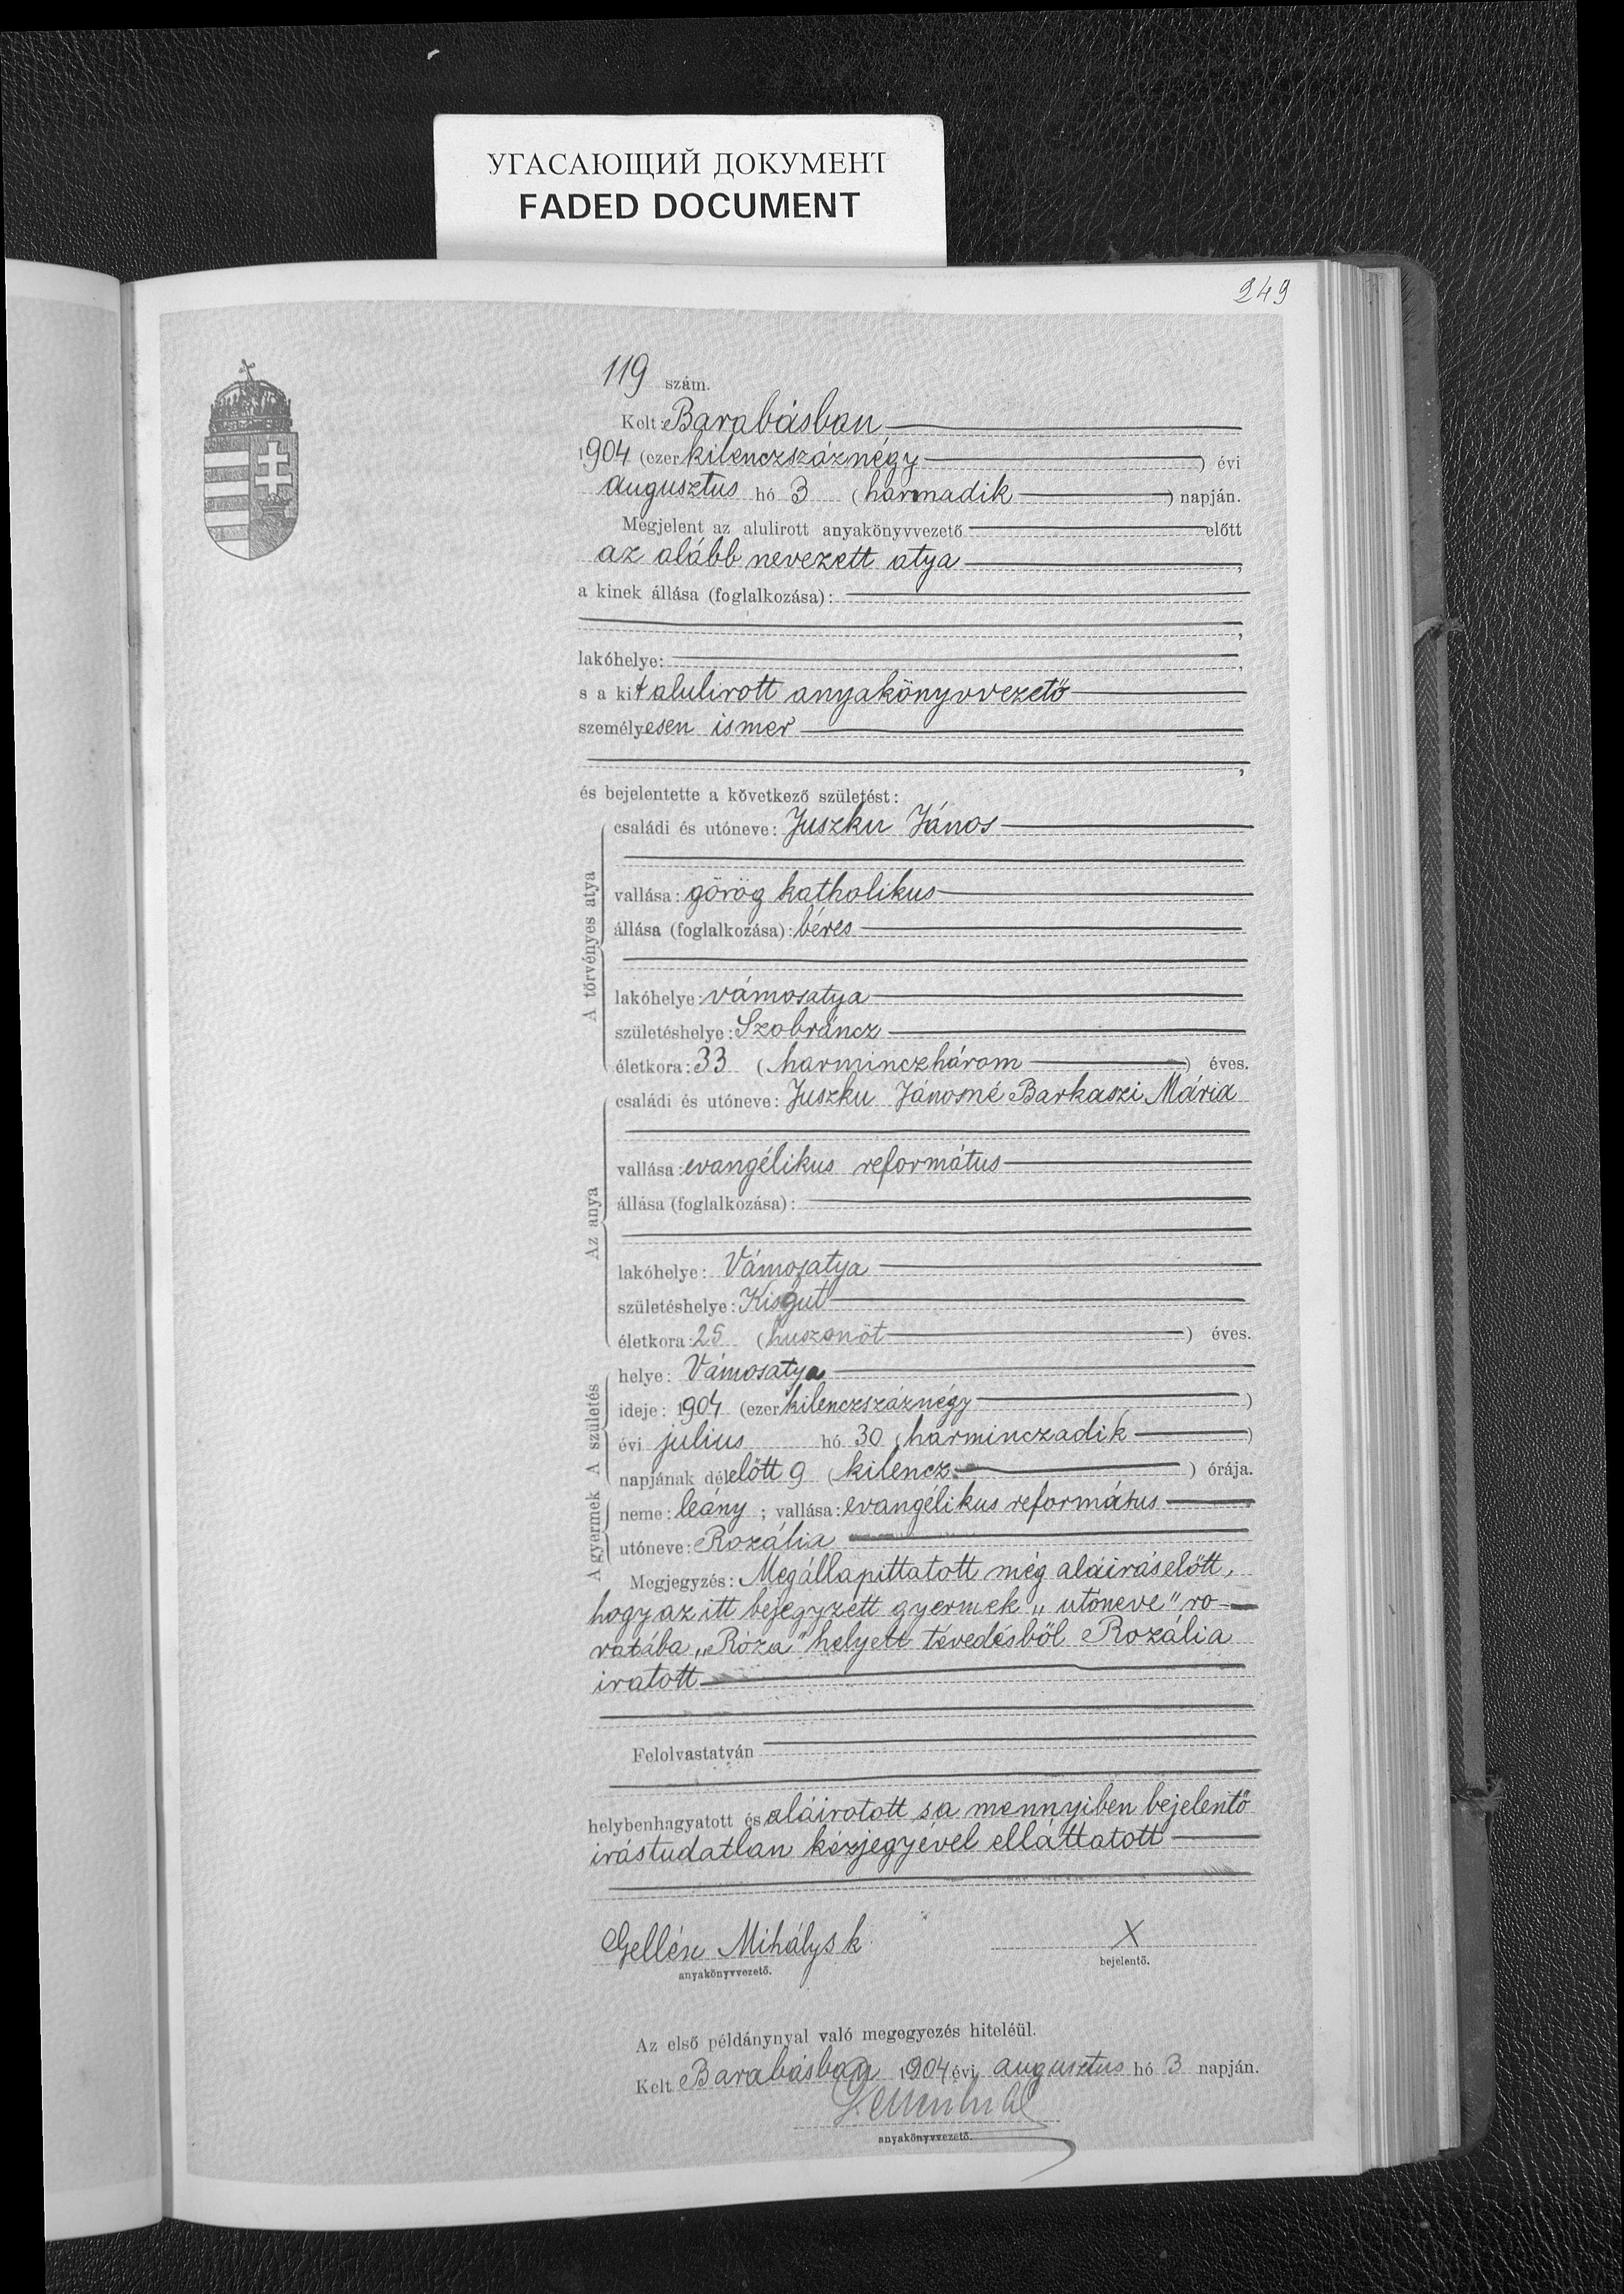 УГАСАЮЩИЙ ДОКУМЕНТ
FADED DOCUMENT
249
119 szám.
Kelt: Barabásban
1904 (ezer kilenczszáznégy) évi
augusztus hó 3 (harmadik) napján.
Megjelent az alulirott anyakönyvvezető előtt
az alább nevezett atya,
a kinek állása (foglalkozása):
lakóhelye:
s a kit alulirott anyakönyvvezető
személyesen ismer
és bejelentette a következő születést:
A törvényes atya
családi és utóneve: Juszku János
vallása: görög katholikus
állása (foglalkozása): béres
lakóhelye: vámosatya
születéshelye: Szobráncz
életkora: 33 (harminczhárom) éves.
Az anya
családi és utóneve: Juszku Jánosné Barkaszi Mária
vallása: evangélikus református
állása (foglalkozása):
lakóhelye: Vámosatya
születéshelye: Kisgut
életkora: 25 (huszonöt) éves.
A születés
helye: Vámosatya
ideje: 1904 (ezer kilenczszáznégy)
évi julius hó 30 (harminczadik)
napjának délelőtt 9 (kilencz) órája.
A gyermek
neme: leány; vallása: evangélikus református
utóneve: Rozália
Megjegyzés: Megállapittatott még aláirás előtt,
hogy az itt bejegyzett gyermek „utóneve" ro-
vatába „Róza" helyett tévedésből Rozália
iratott
Felolvastatván
helybenhagyatott és aláiratott s a mennyiben bejelentő
irástudatlan kézjegyével elláttatott
Gellén Mihály s k
anyakönyvvezető.
X
bejelentő.
Az első példánynyal való megegyezés hiteléül.
Kelt Barabásban 1904 évi augusztus hó 3 napján.
anyakönyvvezető.